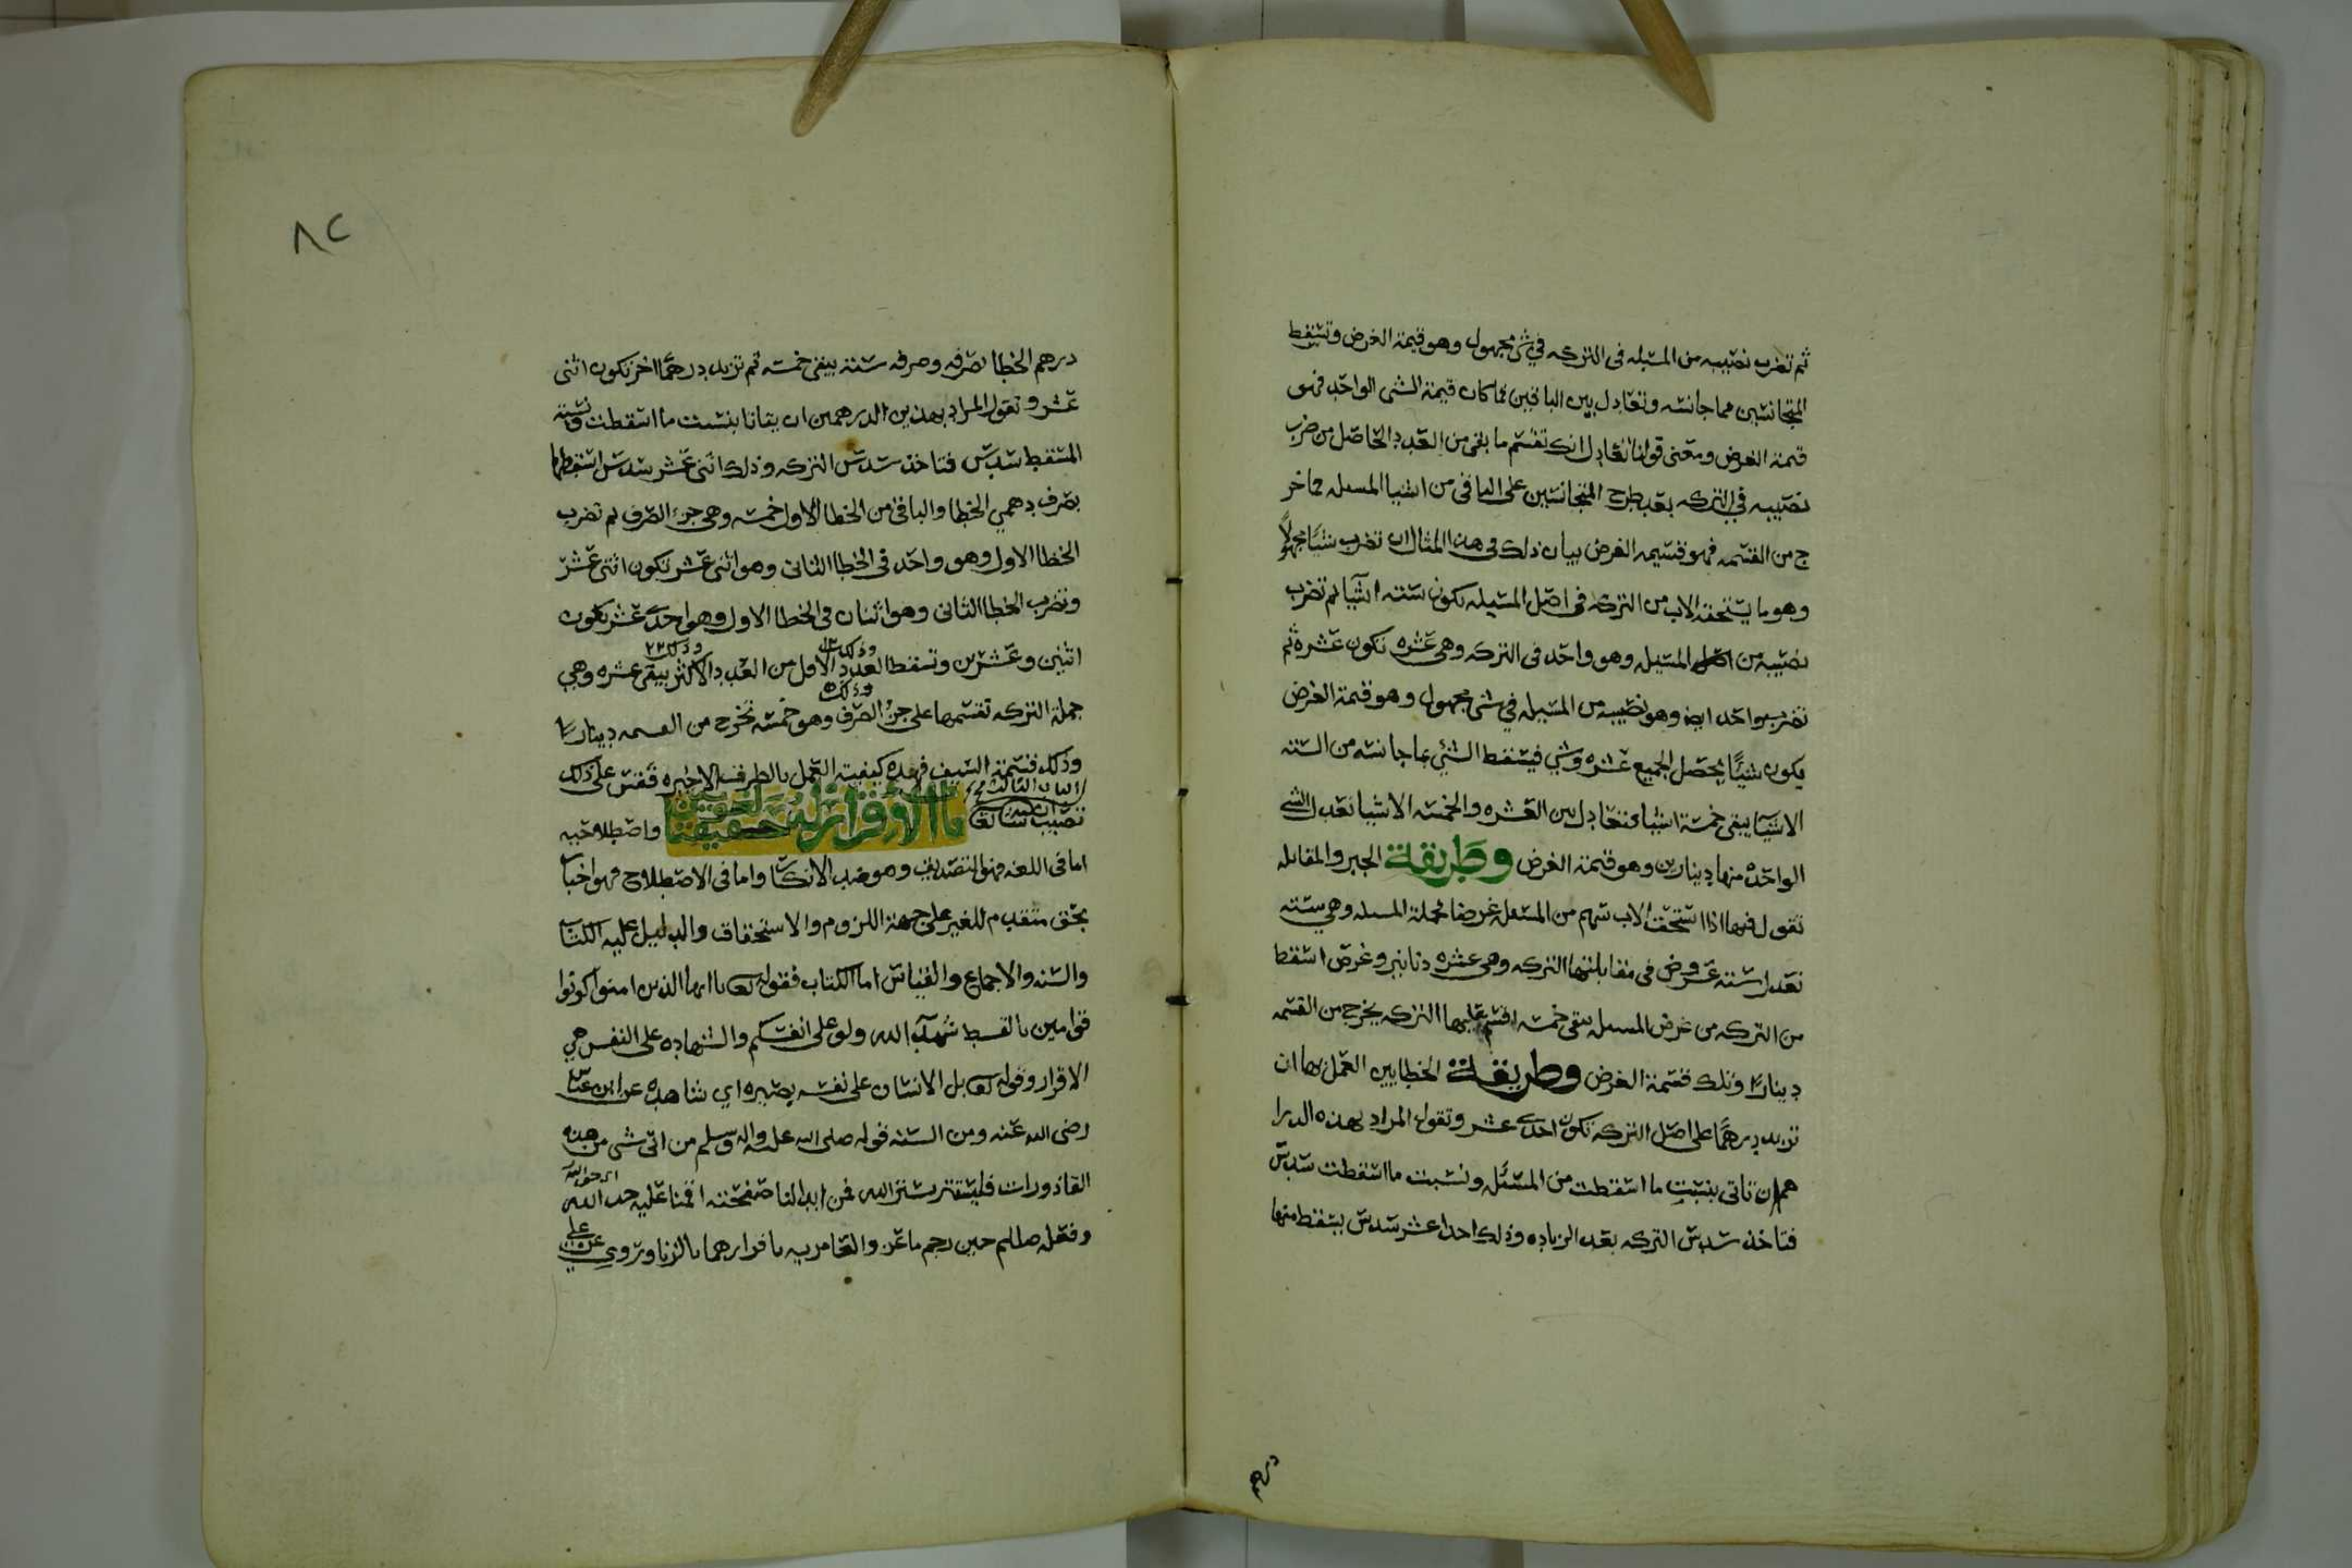 ثم تضرب نصيبه من المسئله في التركه في شي مجهول وهو قيمة العرض وتسقط
المتجانسين مما جانسه وتعادل بين الباقيين فما كان قيمة الشي الواحد فهو
قيمة العرض ومعنى قولنا تعادل انك تقسم ما بقي من العدد الحاصل من ضرب
نصيبه في التركه بعد طرح المتجانسين على الباقي من اشيا المسله فما خر
ج من القسمه فهو قسيمه العرض بيان ذلك في هذا المثال ان تضرب شيئا مجهولا
وهو ما يستحقه الاب من التركه في اصل المسيله يكون سته اشيا ثم تضرب
نصيبه من اصل المسيله وهو واحد في التركه وهي عشره تكون عشرة ثم
تضرب واحد ايضا وهو نصيبه من المسيله في شي مجهول وهو قيمة العرض
يكون شيئا يحصل الجميع عشره وشي فيسقط الشي بما جانسه من السته
الاشيا يبقى خمسة اشيا فتعادل بين العشره والخمسه الاشيا تعدل الشي
الواحد منها دينارين وهو قيمة العرض وطريقة الجبر والمقابله
تقول فيها اذا استحق الاب سهم من المسئله عرضا فجملة المسله وهي سته
تعدل سته عروض في مقابلتها التركه وهي عشره دنانير وعرض اسقط
من التركه من عرض المسله يبقى خمسه اقسم عليها التركه يخرج من القسمه
دينارين وتلك قسمة العرض وطريقة الخطايين العمل بها ان
تزيد درهما على اصل التركه تكون احدى عشر وتقول المراد بهذه الدرا
هم ان تاتي بنسبت ما اسقطت من المسئله ونسبت ما اسقطت سدس
فتاخذ سدس التركه بعد الزياده وذلك احدا عشر سدس يسقط منها
درهم
٨٢
درهم الخطا بصرفه وصرفه سته يبقى خمسه ثم تزيد درهما اخر تكون اثنى
عشر وتقول المراد بهذين الدرهمين ان ياتانا بنسبت ما اسقطت ونسبة
المسقط سدس فتاخذ سدس التركه وذلك اثنى عشر سدس اسقطها
بصرف دهمي الخطا والباقي من الخطا الاول خمسه وهي جزء الصرف ثم تضرب
الخطا الاول وهو واحد في الخطا الثاني وهو اثنى عشر يكون اثنى عشر
وتضرب الخطا الثاني وهو اثنان في الخطا الاول وهو احدى عشر يكون
وذلك ١٢ وذلك ٢٢
اثنين وعشرين وتسقط العدد الاول من العدد الاكثر يبقى عشره وهي
وذلك ٥
جملة التركه تقسمها على جزء الصرف وهو خمسه تخرج من القسمه دينارين
وذلك قسمة السيف فهذه كيفية العمل بالطرف الاخيره فقس على ذلك
الباب الثالث
تصيب ان شا الله تعا باب الاقرار له حقيقتين لغويه واصطلاحيه
اما في اللغه فهو التصديق وهو ضد الانكار واما في الاصطلاح فهو اخبار
بحق متقدم للغير على جهة اللزوم والاستحقاق والدليل عليه الكتاب
والسنه والاجماع والقياس اما الكتاب فقوله تعا يا ايها الذين امنوا كونوا
قوامين بالقسط شهدآ لله ولو على انفسكم والشهاده على النفس هي
الاقرار وقوله تعا بل الانسان على نفسه بصيره اي شاهده عن ابن عباس
رضى الله عنه ومن السنه قوله صلى الله عليه واله وسلم من اتى شي من هذه
القاذورات فليستتر بستر الله فمن ابدا لنا صفحته اقمنا عليه حد الله
وفعله صللم حين رجم ماعز والعامريه باقرارهما بالزنا وروي عن علي